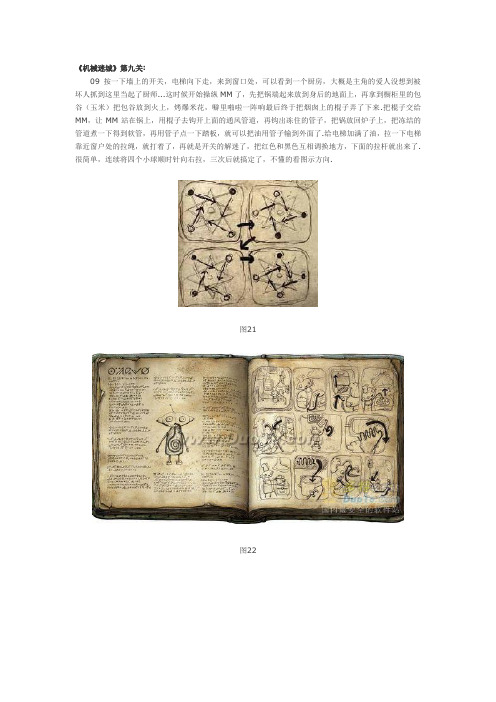 《机械迷城》第九关:
09 按一下墙上的开关，电梯向下走，来到窗口处，可以看到一个厨房，大概是主角的爱人没想到被
坏人抓到这里当起了厨师...这时候开始操纵 MM 了，先把锅端起来放到身后的地面上，再拿到橱柜里的包
谷（玉米）把包谷放到火上，烤爆米花，噼里啪啦一阵响最后终于把烟囱上的棍子弄了下来.把棍子交给
MM，让 MM 站在锅上，用棍子去钩开上面的通风管道，再钩出冻住的管子，把锅放回炉子上，把冻结的
管道煮一下得到软管，再用管子点一下踏板，就可以把油用管子输到外面了.给电梯加满了油，拉一下电梯
靠近窗户处的拉绳，就打着了，再就是开关的解迷了，把红色和黑色互相调换地方，下面的拉杆就出来了.
很简单，连续将四个小球顺时针向右拉，三次后就搞定了，不懂的看图示方向.
图21
www.Duote.com
Duote.com
国内最安全的软件站
图22